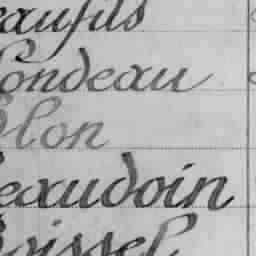 eaufils
ondeau
lon
eaudoin
oissel